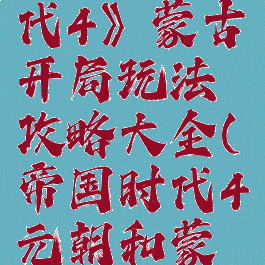 代4》蒙古
开局玩法
攻略大全(
帝国时代4
元朝和蒙